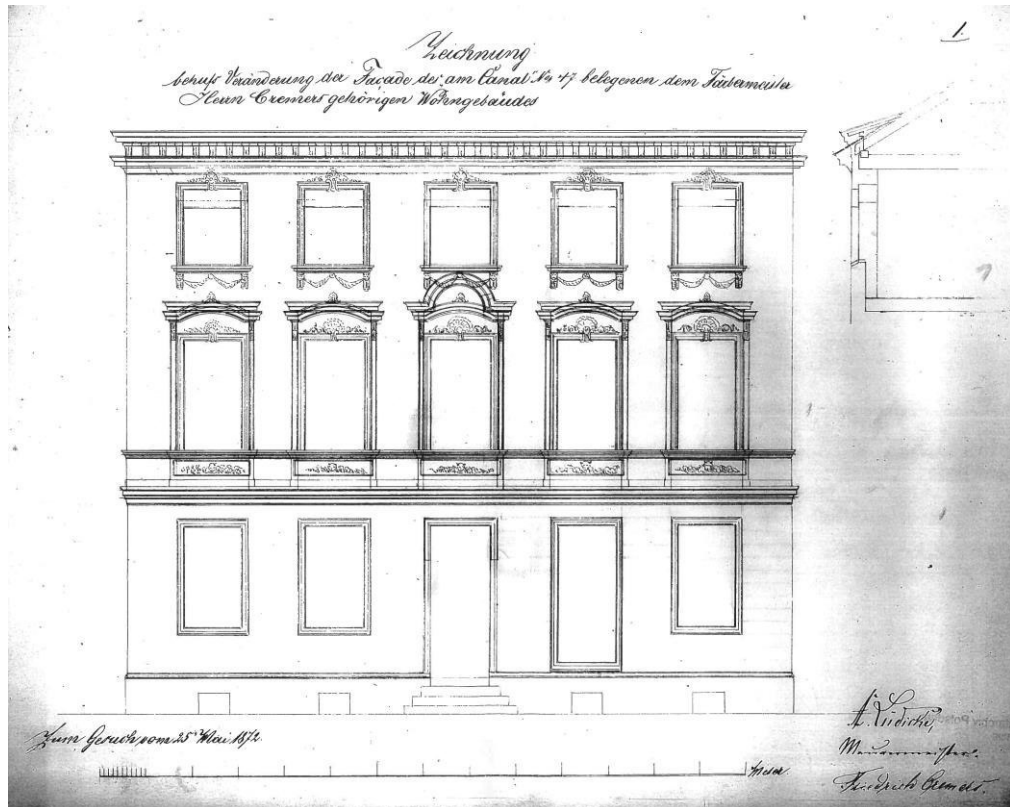 1.
Zeichnung
behufs Veränderung der Façade des am Canal No 47 belegenen dem Färbermeister
Herrn Cremers gehörigen Wohngebäudes
Zum Gesuch vom 25 Mai 1872.
Meter
A. Lüdicke,
Maurermeister.
Friedrich Cremers.